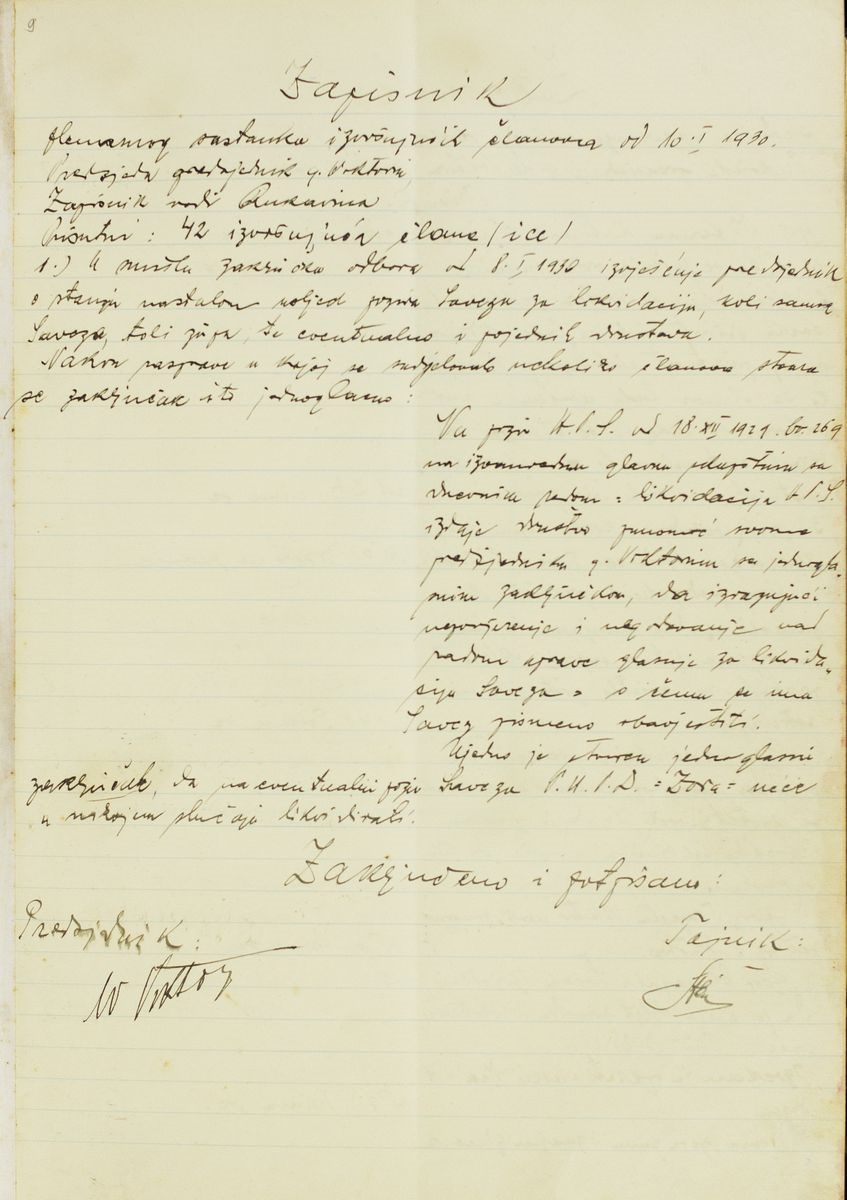 9
Zapisnik
plenarnog sastanka izvršujućih članova od 10.I 1930.
Predsjeda predsjednik g. Viktorin
Zapisnik vodi Rukavina
Prisutni : 42 izvršujuća člana /ice/
1.) U smislu zaključka odbora od 8.I 1930 izvješćuje predsjednik
o stanju nastalom usljed poziva Saveza za likvidaciju, koli samog
Saveza, toli župa, te eventualno i pojedinih društava.
Nakon rasprave u kojoj se sudjelovalo nekoliko članova stvara
se zaključak i to jednoglasno:
Na poziv H.P.S. od 18.XII 1929. br. 269
na izvanrednu glavnu skupštinu sa
dnevnim redom = likvidacija H.P.S.
izdaje društvo punomoć svome
predsjedniku g. Viktorinu sa jednogla-
snim zaključkom, da izrazujući
nepovjerenje i negodovanje nad
radom uprave glasuje za likvida-
ciju Saveza = o čemu se ima
Savez pismeno obavjestiti.
Ujedno je stvoren jednoglasni
zaključak, da na eventualni poziv Saveza P.H.P.D. =Zora= neće
u nikojem slučaju likvidirati.
Zaključeno i potpisano:
Predsjednik: Tajnik: